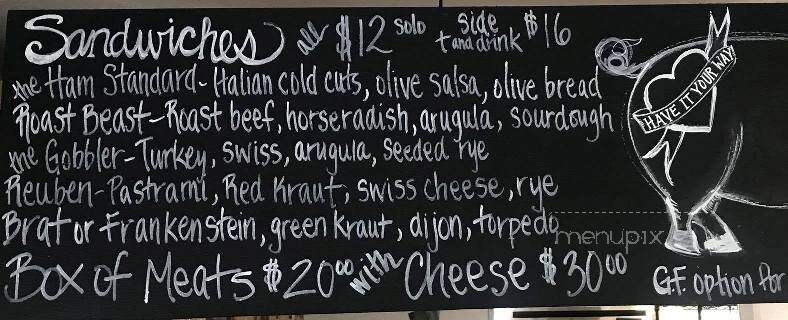 Sandwiches all $12 solo side + and drink $16
the Ham Standard - Italian cold cuts, olive salsa, olive bread
Roast Beast - Roast beef, horseradish, arugula, sourdough
the Gobbler - Turkey, swiss, arugula, seeded rye
Reuben - Pastrami, Red Kraut, swiss cheese, rye
Brat or Frankenstein, green kraut, dijon, torpedo
Box of Meats $20.00 with Cheese $30.00
HAVE IT YOUR WAY!
G.F. option for
menupix